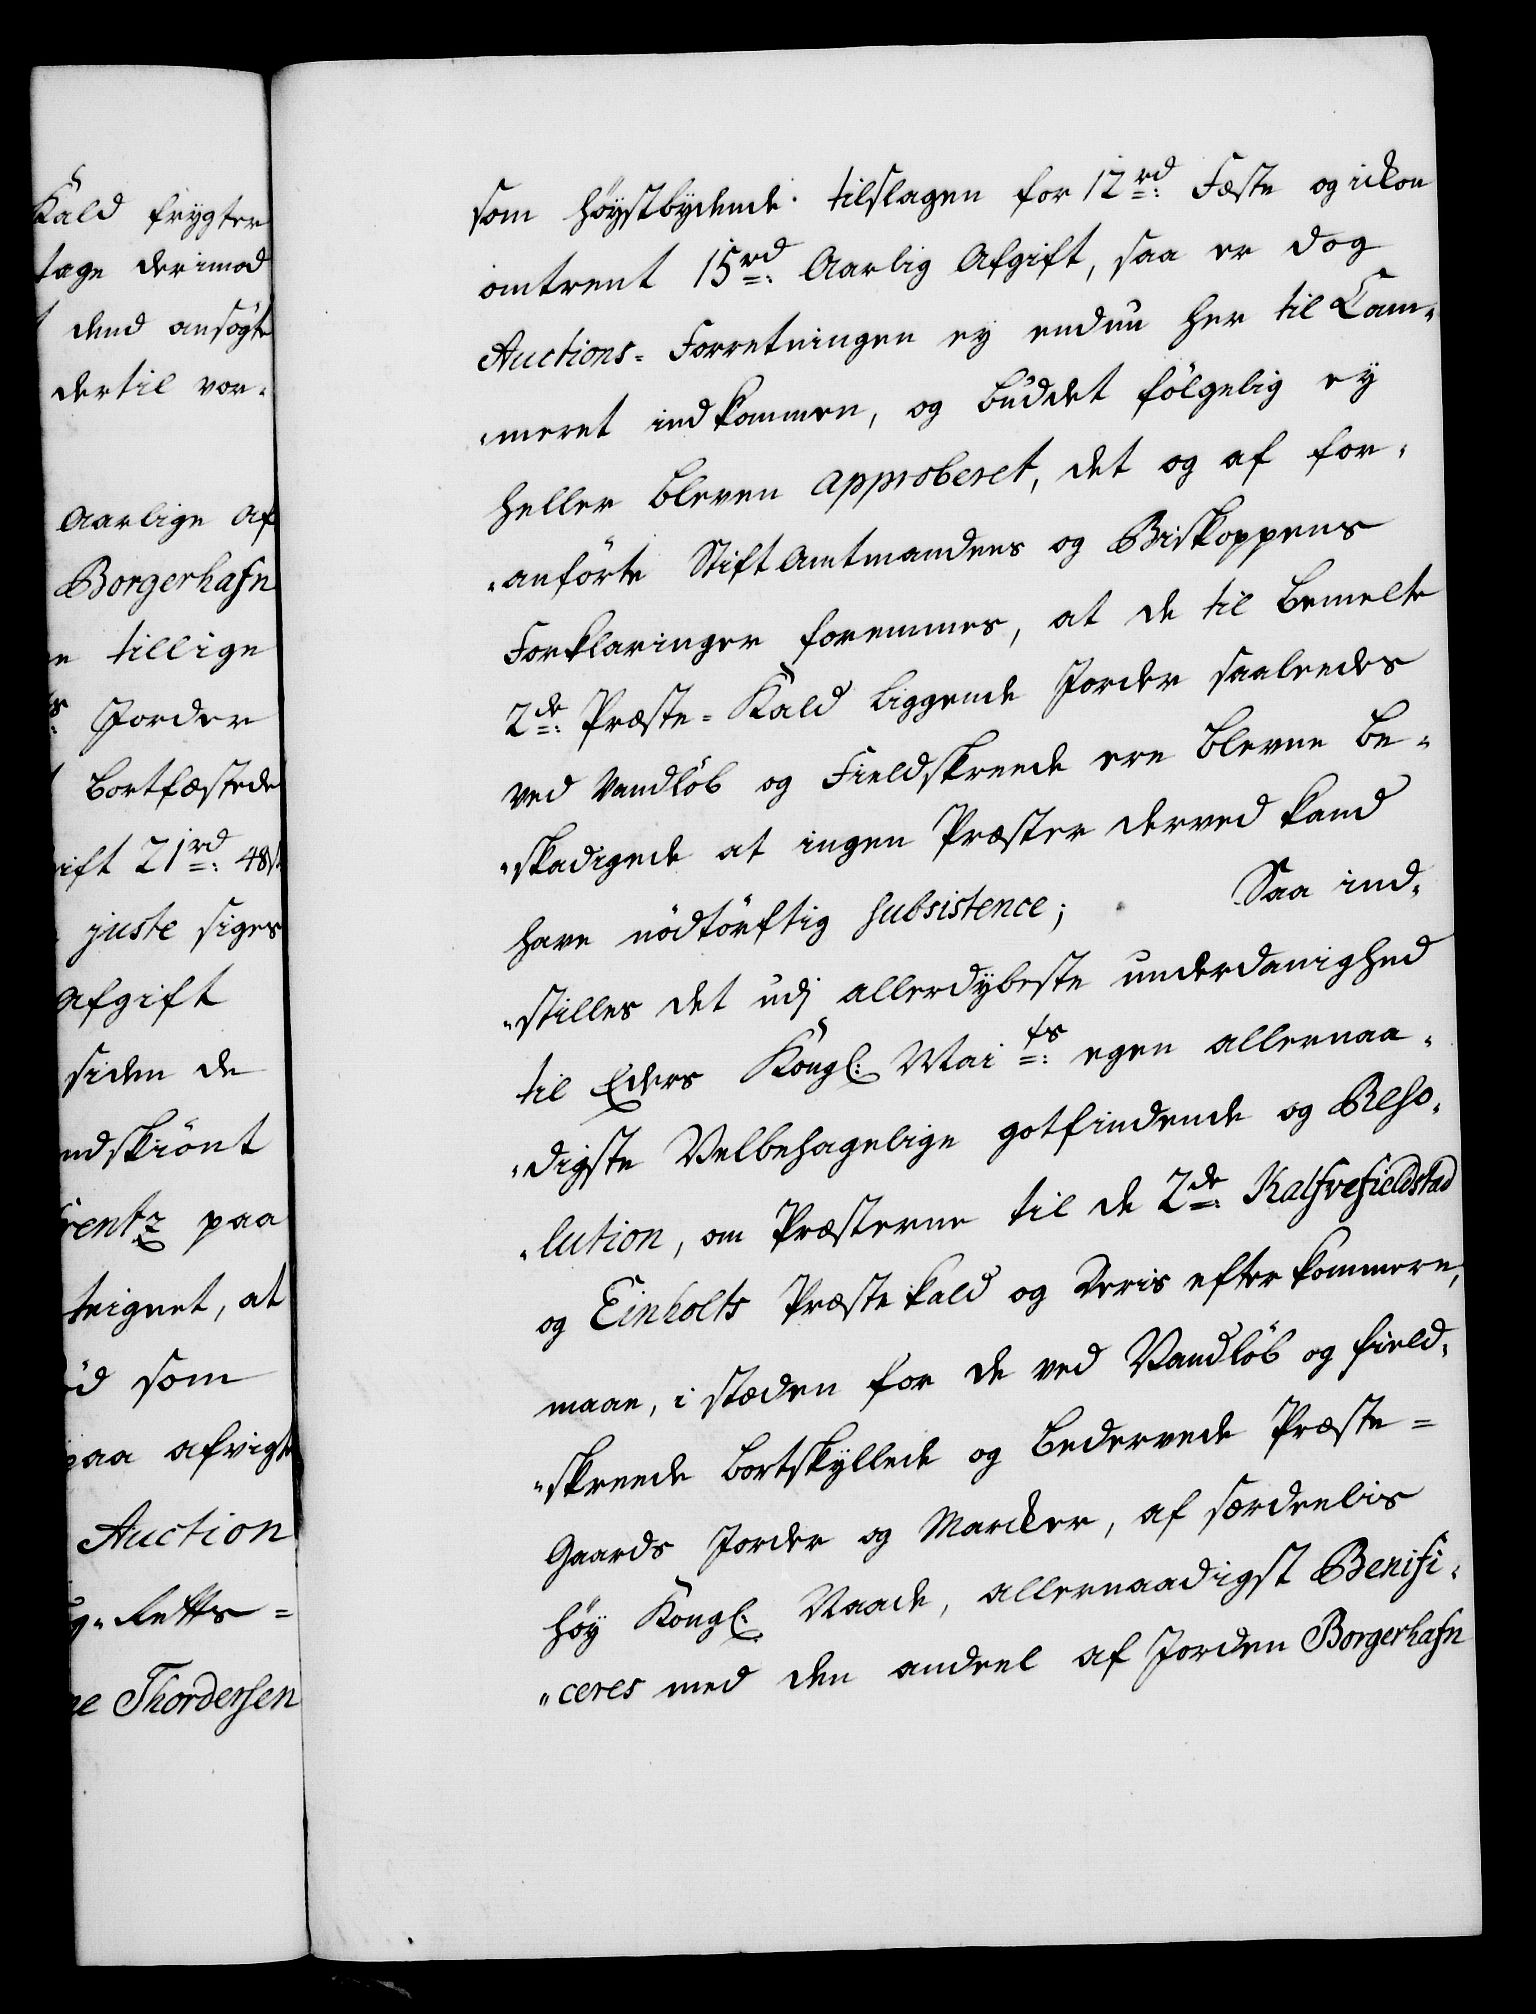 Kald frygter
tage derimod
dend ansögte
dertil vor-
Aarlige Af
Borgerhafn
tillige
Jorder
bortfæstede
ift 21 rd: 48 s
juste siger
Afgift
siden de
ndskiönt
paa
teignet, at
som
paa afvigte
Auction
Thordersen
som höystbydende tilslagen for 12 rd: Fæste og ickon
omtrent 15 rd: Aarlig Afgift, saa er dog
Auctions-Forretningen ey endnu her til Cam-
meret indkommen, og buddet fölgelig ey
heller bleven approberet, det og af for-
anförte Stiftamtmandens og Biskoppens
Forklaringer fornemmes, at de til bemelte
2de: Præste-Kald liggende Jorder saaledes
ved Vandlöb og Fieldskreede ere blevne be-
skadigede at ingen Præster derved kand
have nödtörftig subsistence; Saa ind-
stilles det udj allerdybeste underdanighed
til Eders Kongl: Mai ts: egen allernaa-
digste Velbehagelige gotfindende og Reso-
lution, om Præsterne til de 2de: Kalfvefieldstad
og Einholts Præstekald og deris efterkommere,
maae, i stæden for de ved Vandlöb og field-
skreede bortskyllede og bedervede Præste-
Gaards Jorder og Marcker, af særdeelis
höy Kongl: Naade, allernaadigst Benifi-
ceres med den andeel af Jorden Borgerhafn